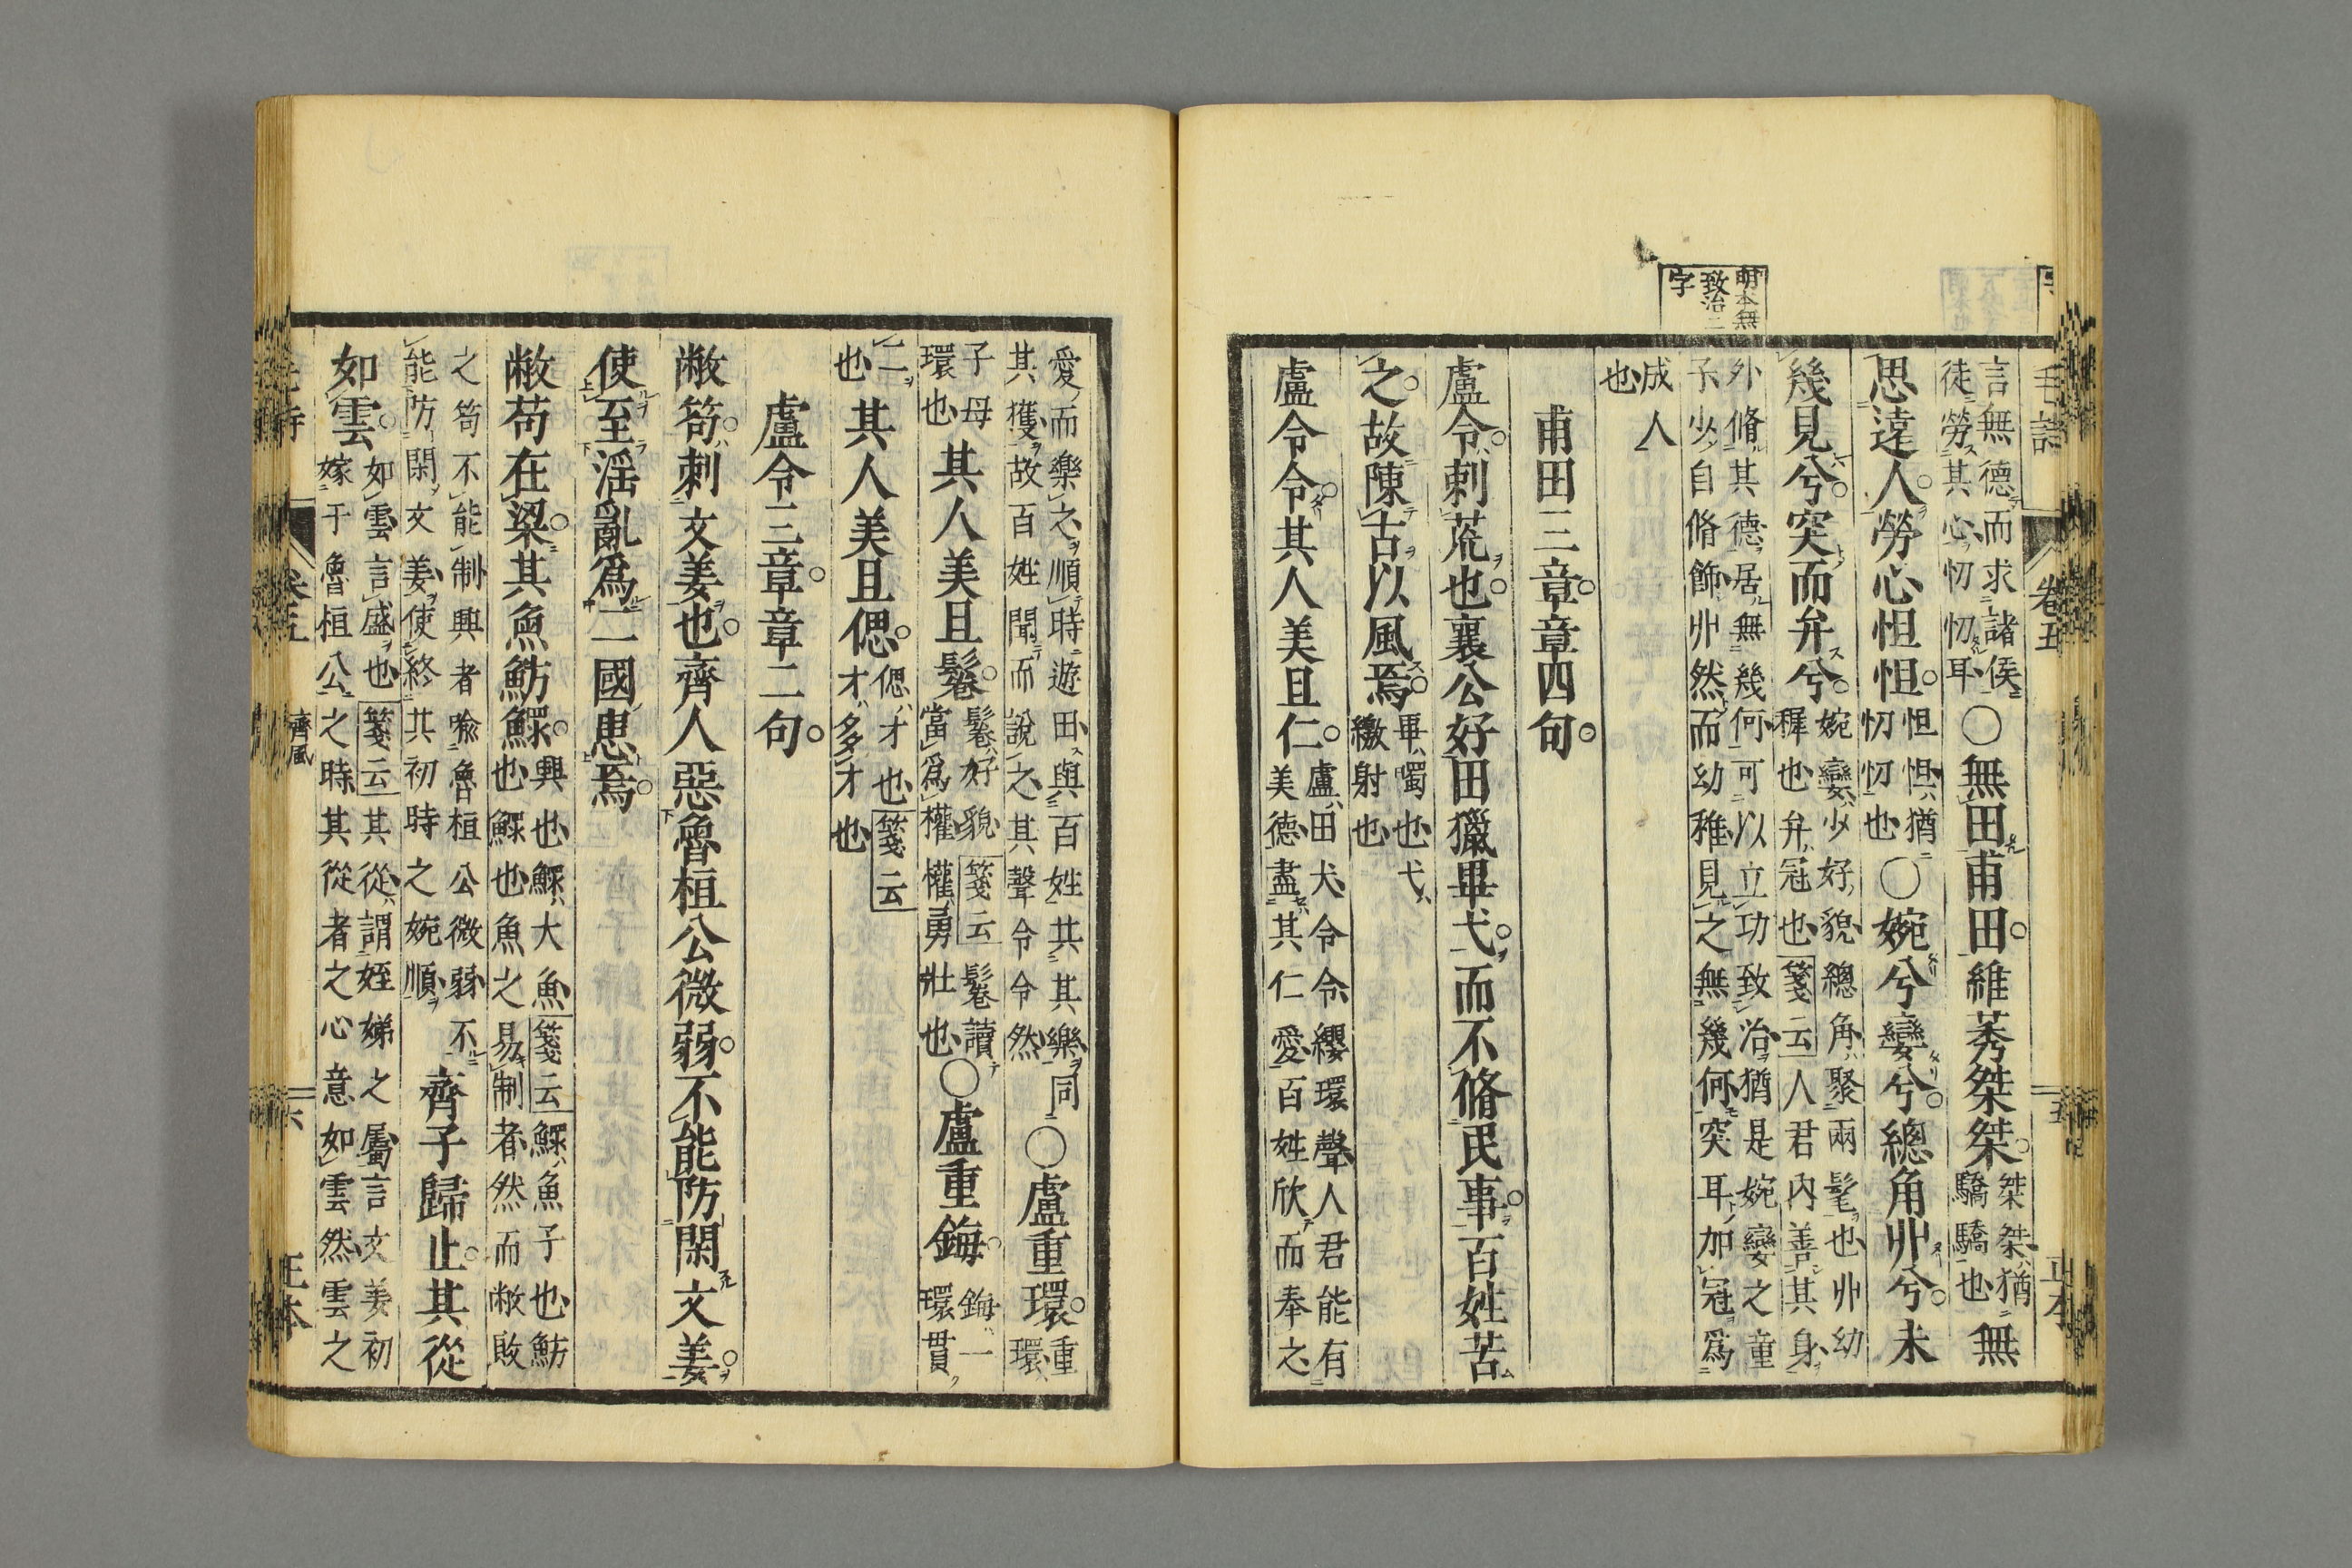 明本無
致治二
字
毛詩
卷五
五
言無德而求諸侯
徒勞其心忉忉耳
○無田甫田維莠桀桀
桀桀猶
驕驕也
無
思遠人勞心怛怛
怛怛猶
忉忉也
○婉兮孌兮總角丱兮未
幾見兮突而弁兮
婉孌少好貌總角聚兩髦也丱幼
穉也弁冠也箋云人君內善其身
外脩其德居無幾何可以立功致治猶是婉孌之童
子少自脩飾丱然而幼稚見之無幾何突耳加冠爲
成人
也
甫田三章章四句
盧令刺荒也襄公好田獵畢弋而不脩民事百姓苦
之故陳古以風焉
畢噣也弋
繳射也
盧令令其人美且仁
盧田犬令令纓環聲人君能有
美德盡其仁愛百姓欣而奉之
愛而樂之順時遊田與百姓共其樂同
其獲故百姓聞而說之其聲令令然
○盧重環
重環
子母
環也
其人美且鬈
鬈好貌箋云鬈讀
當爲權權勇壯也
○盧重鋂
鋂一
環貫
二
也
其人美且偲
偲才也箋云
才多才也
盧令三章章二句
敝笱刺文姜也齊人惡魯桓公微弱不能防閑文姜
使至淫亂爲二國患焉
敝苟在梁其魚魴鰥
興也鰥大魚箋云鰥魚子也魴
也鰥也魚之易制者然而敝敗
之笱不能制興者喩魯桓公微弱不
能防閑文姜使終其初時之婉順
齊子歸止其從
如雲
如雲言盛也箋云其從謂姪娣之屬言文姜初
嫁于魯桓公之時其從者之心意如雲然雲之
卷五
齊風
六